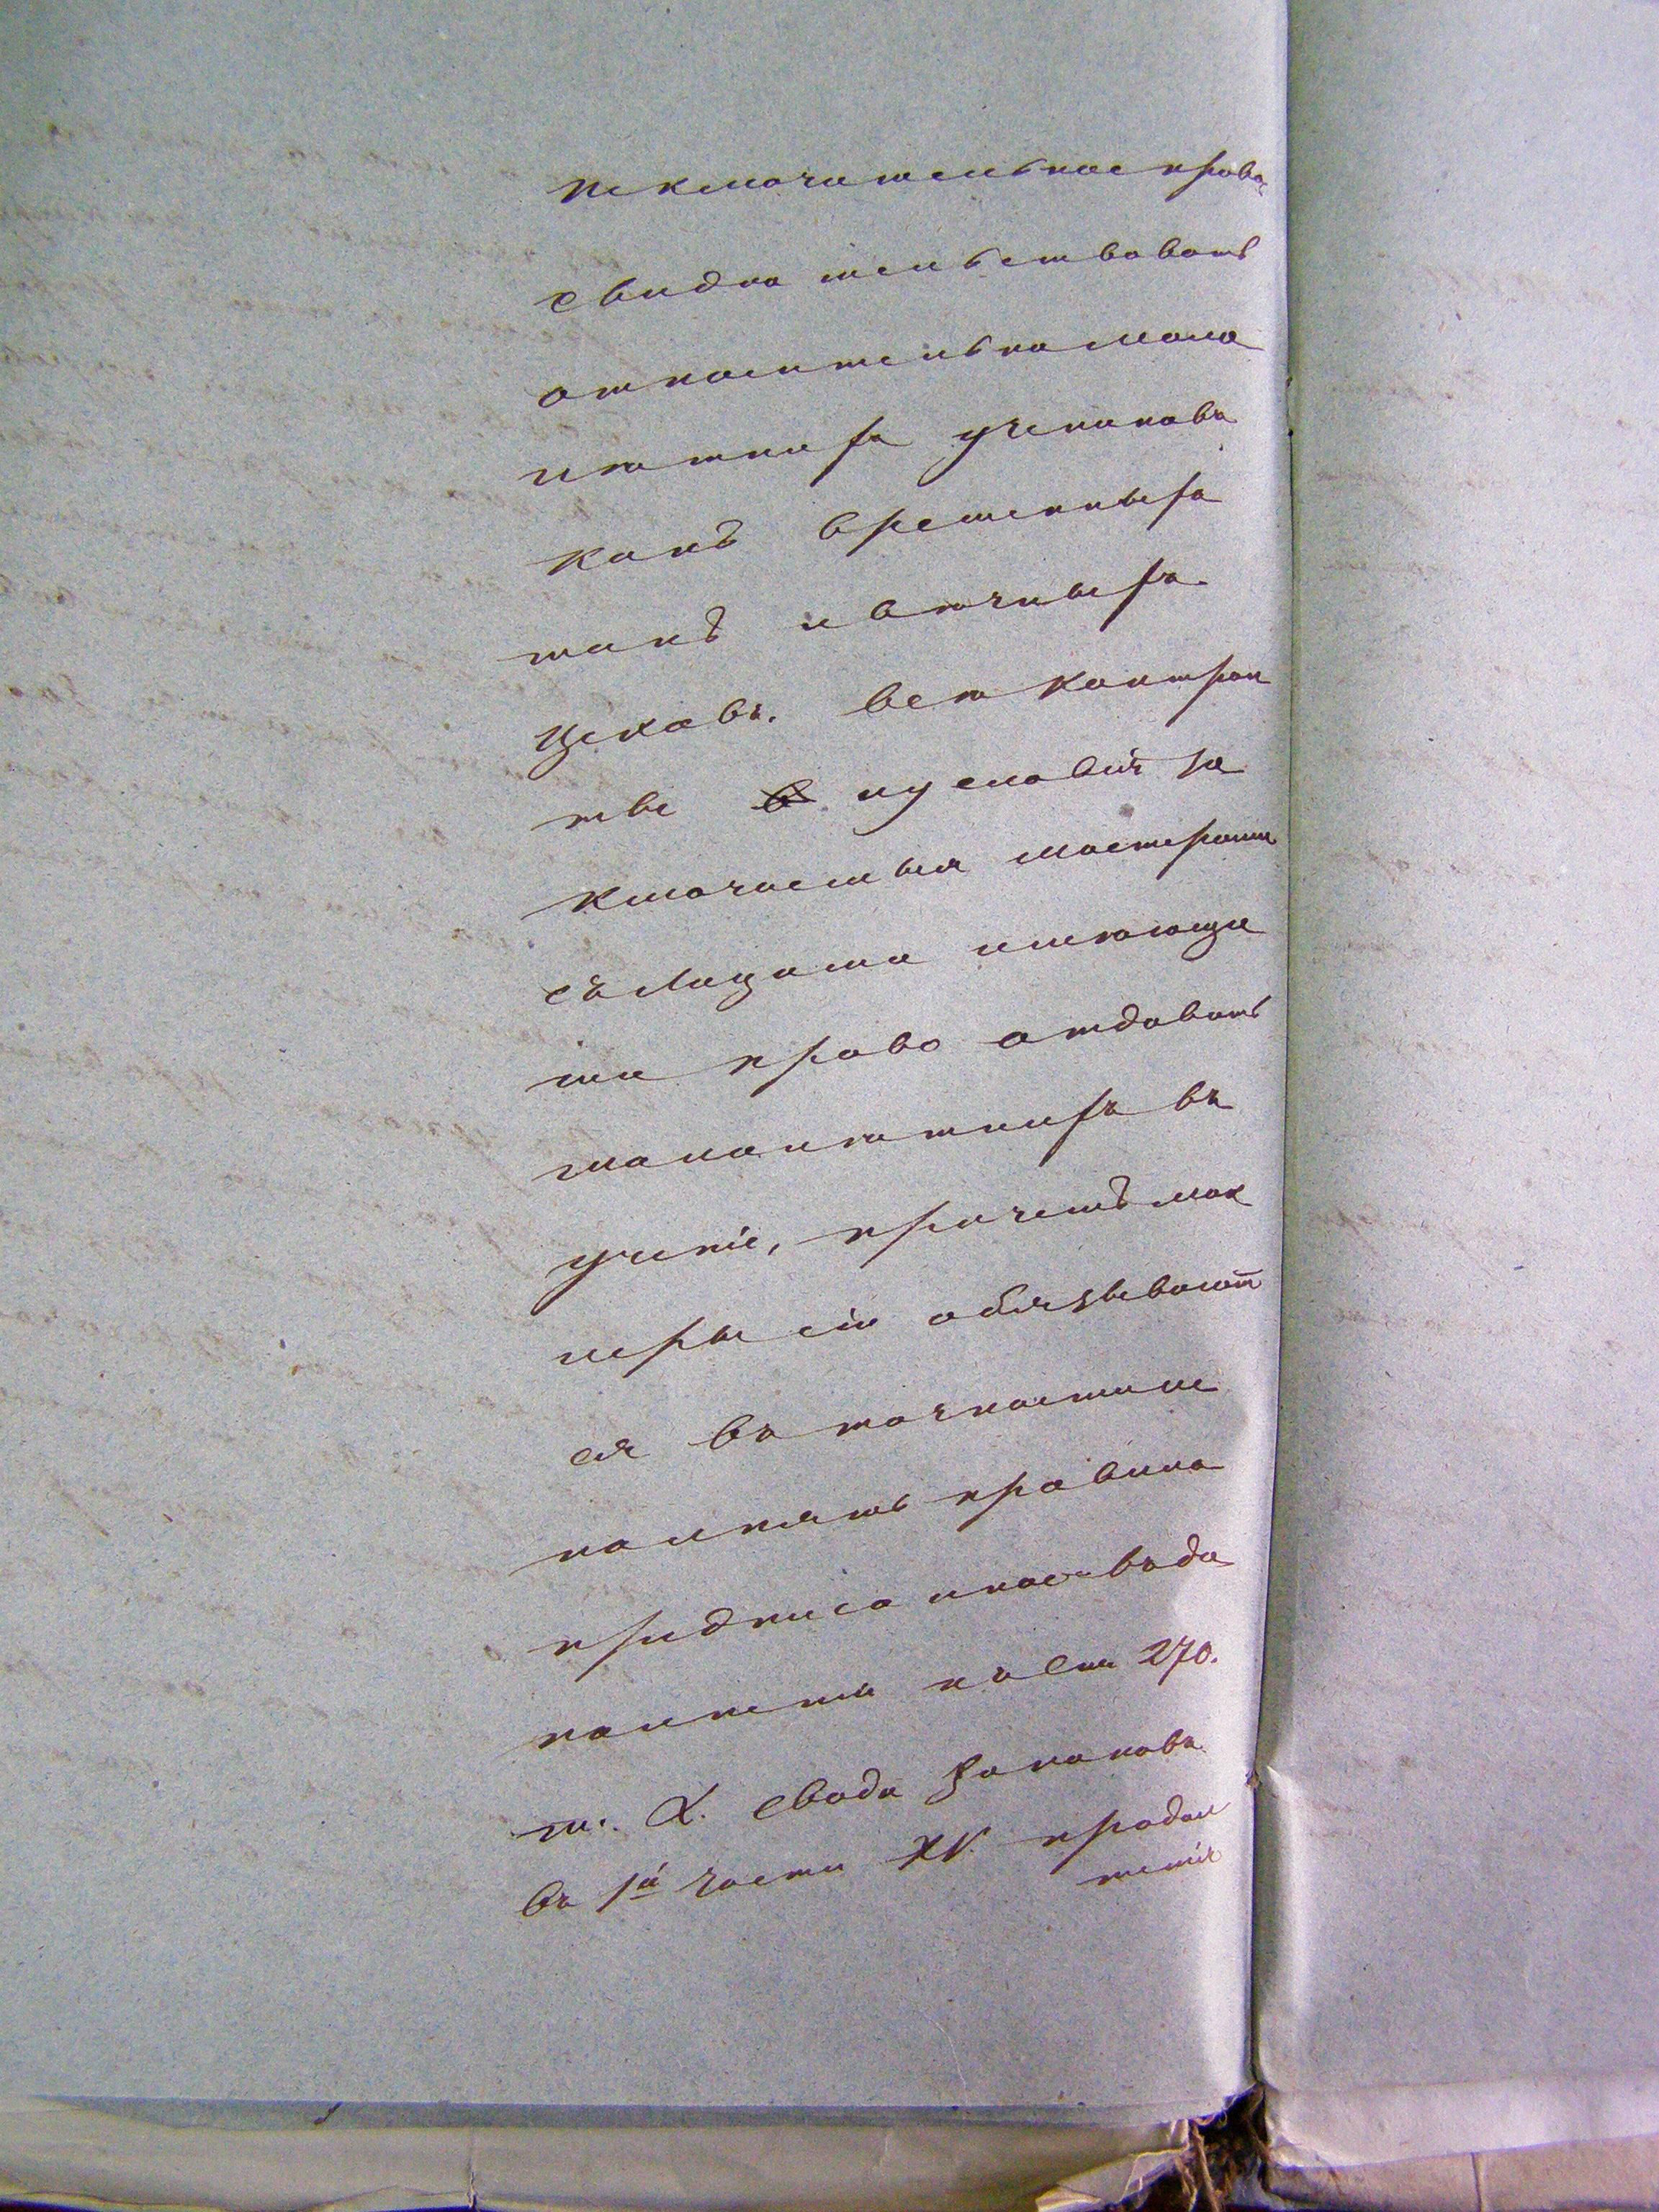 исключительное право
свидѣтельствовать
относительно мало
лѣтнихъ учениковъ
какъ временныхъ
такъ и вѣчныхъ
цеховъ. Всѣ контрак
ты и условія за
ключаемыя мастерами
съ лицами имѣющи
ми право отдавать
малолѣтнихъ въ
ученіе, причемъ мак
леры сіи обязываютъ
ся въ точности ис
полнять правила
предписанное въ до
полненіи къ Ст. 270.
т. X. Свода Законовъ
въ 1й части XV. продол
женія